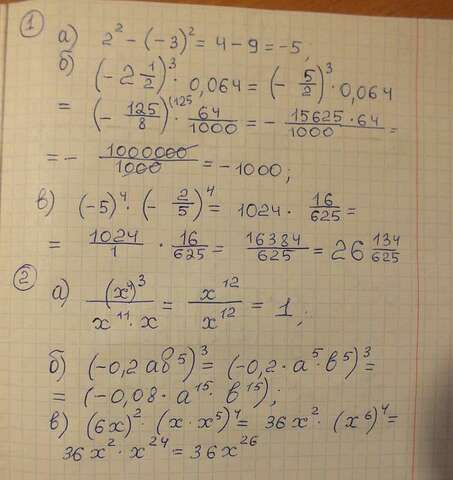 1 а) 2² - (-3)² = 4 - 9 = -5;
б) (-2 1/2)³ · 0,064 = (- 5/2)³ · 0,064
= (- 125/8)^(125 · 64/1000 = - 15625 · 64/1000 =
= - 1000000/1000 = -1000;
в) (-5)⁴ · (- 2/5)⁴ = 1024 · 16/625 =
= 1024/1 · 16/625 = 16384/625 = 26 134/625
2 а) (x⁴)³/x¹¹ · x = x¹²/x¹² = 1;
б) (-0,2 ab⁵)³ = (-0,2 · a⁵ · b⁵)³ =
= (-0,08 · a¹⁵ · b¹⁵);
в) (6x)² · (x · x⁵)⁴ = 36x² · (x⁶)⁴ =
36x² · x²⁴ = 36x²⁶